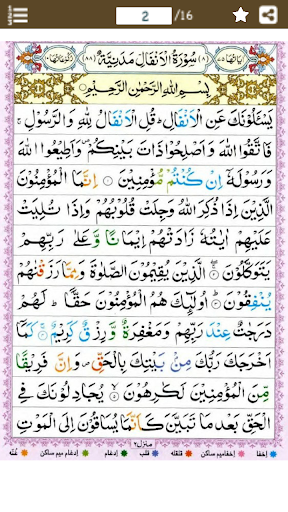 2 /16
اٰیَاتُهَا ۷۵ (۸) سُوْرَةُ الْاَنْفَالِ مَدَنِیَّةٌ (۸۸) رُكُوْعَاتُهَا ۱۰
بِسْمِ اللّٰهِ الرَّحْمٰنِ الرَّحِیْمِ
یَسْـَٔلُوْنَكَ عَنِ الْاَنْفَالِ ؕ قُلِ الْاَنْفَالُ لِلّٰهِ وَالرَّسُوْلِ ۚ
فَاتَّقُوا اللّٰهَ وَاَصْلِحُوْا ذَاتَ بَیْنِكُمْ ۪ وَاَطِیْعُوا اللّٰهَ
وَرَسُوْلَهٗۤ اِنْ كُنْتُمْ مُّؤْمِنِیْنَ ۝ اِنَّمَا الْمُؤْمِنُوْنَ
الَّذِیْنَ اِذَا ذُكِرَ اللّٰهُ وَجِلَتْ قُلُوْبُهُمْ وَاِذَا تُلِیَتْ
عَلَیْهِمْ اٰیٰتُهٗ زَادَتْهُمْ اِیْمَانًا وَّ عَلٰى رَبِّهِمْ
یَتَوَكَّلُوْنَ ۝ الَّذِیْنَ یُقِیْمُوْنَ الصَّلٰوةَ وَمِمَّا رَزَقْنٰهُمْ
یُنْفِقُوْنَ ۝ اُولٰٓىِٕكَ هُمُ الْمُؤْمِنُوْنَ حَقًّا ؕ لَهُمْ
دَرَجٰتٌ عِنْدَ رَبِّهِمْ وَمَغْفِرَةٌ وَّ رِزْقٌ كَرِیْمٌ ۝ كَمَاۤ
اَخْرَجَكَ رَبُّكَ مِنْۢ بَیْتِكَ بِالْحَقِّ ۪ وَاِنَّ فَرِیْقًا
مِّنَ الْمُؤْمِنِیْنَ لَكٰرِهُوْنَ ۝ یُجَادِلُوْنَكَ فِی
الْحَقِّ بَعْدَ مَا تَبَیَّنَ كَاَنَّمَا یُسَاقُوْنَ اِلَى الْمَوْتِ
منزل۲
اخفا اخفامیم ساکن قلقله قلب ادغام ادغام میم ساکن غُنّه